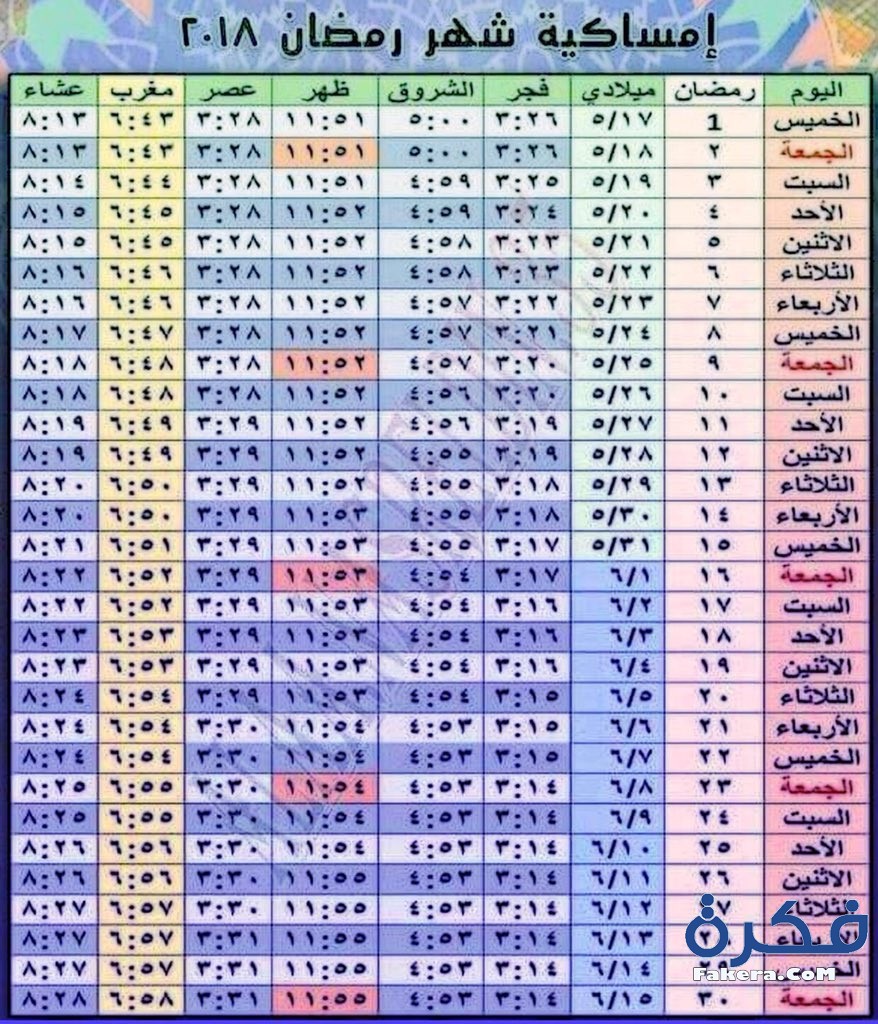 إمساكية شهر رمضان ٢٠١٨
اليوم رمضان ميلادي فجر الشروق ظهر عصر مغرب عشاء
الخميس 1 ٥/١٧ ٣:٢٦ ٥:٠٠ ١١:٥١ ٣:٢٨ ٦:٤٣ ٨:١٣
الجمعة ٢ ٥/١٨ ٣:٢٦ ٥:٠٠ ١١:٥١ ٣:٢٨ ٦:٤٣ ٨:١٣
السبت ٣ ٥/١٩ ٣:٢٥ ٤:٥٩ ١١:٥١ ٣:٢٨ ٦:٤٤ ٨:١٤
الأحد ٤ ٥/٢٠ ٣:٢٤ ٤:٥٩ ١١:٥٢ ٣:٢٨ ٦:٤٥ ٨:١٥
الاثنين ٥ ٥/٢١ ٣:٢٣ ٤:٥٨ ١١:٥٢ ٣:٢٨ ٦:٤٥ ٨:١٥
الثلاثاء ٦ ٥/٢٢ ٣:٢٣ ٤:٥٨ ١١:٥٢ ٣:٢٨ ٦:٤٦ ٨:١٦
الأربعاء ٧ ٥/٢٣ ٣:٢٢ ٤:٥٧ ١١:٥٢ ٣:٢٨ ٦:٤٦ ٨:١٦
الخميس ٨ ٥/٢٤ ٣:٢١ ٤:٥٧ ١١:٥٢ ٣:٢٨ ٦:٤٧ ٨:١٧
الجمعة ٩ ٥/٢٥ ٣:٢٠ ٤:٥٧ ١١:٥٢ ٣:٢٨ ٦:٤٨ ٨:١٨
السبت ١٠ ٥/٢٦ ٣:٢٠ ٤:٥٦ ١١:٥٢ ٣:٢٨ ٦:٤٨ ٨:١٨
الأحد ١١ ٥/٢٧ ٣:١٩ ٤:٥٦ ١١:٥٢ ٣:٢٩ ٦:٤٩ ٨:١٩
الاثنين ١٢ ٥/٢٨ ٣:١٩ ٤:٥٥ ١١:٥٢ ٣:٢٩ ٦:٤٩ ٨:١٩
الثلاثاء ١٣ ٥/٢٩ ٣:١٨ ٤:٥٥ ١١:٥٢ ٣:٢٩ ٦:٥٠ ٨:٢٠
الأربعاء ١٤ ٥/٣٠ ٣:١٨ ٤:٥٥ ١١:٥٣ ٣:٢٩ ٦:٥٠ ٨:٢٠
الخميس ١٥ ٥/٣١ ٣:١٧ ٤:٥٥ ١١:٥٣ ٣:٢٩ ٦:٥١ ٨:٢١
الجمعة ١٦ ٦/١ ٣:١٧ ٤:٥٤ ١١:٥٣ ٣:٢٩ ٦:٥٢ ٨:٢٢
السبت ١٧ ٦/٢ ٣:١٦ ٤:٥٤ ١١:٥٣ ٣:٢٩ ٦:٥٢ ٨:٢٢
الأحد ١٨ ٦/٣ ٣:١٦ ٤:٥٤ ١١:٥٣ ٣:٢٩ ٦:٥٣ ٨:٢٣
الاثنين ١٩ ٦/٤ ٣:١٦ ٤:٥٤ ١١:٥٣ ٣:٢٩ ٦:٥٣ ٨:٢٣
الثلاثاء ٢٠ ٦/٥ ٣:١٥ ٤:٥٤ ١١:٥٣ ٣:٢٩ ٦:٥٤ ٨:٢٤
الأربعاء ٢١ ٦/٦ ٣:١٥ ٤:٥٣ ١١:٥٤ ٣:٣٠ ٦:٥٤ ٨:٢٤
الخميس ٢٢ ٦/٧ ٣:١٥ ٤:٥٣ ١١:٥٤ ٣:٣٠ ٦:٥٤ ٨:٢٤
الجمعة ٢٣ ٦/٨ ٣:١٤ ٤:٥٣ ١١:٥٤ ٣:٣٠ ٦:٥٥ ٨:٢٥
السبت ٢٤ ٦/٩ ٣:١٤ ٤:٥٣ ١١:٥٤ ٣:٣٠ ٦:٥٥ ٨:٢٥
الأحد ٢٥ ٦/١٠ ٣:١٤ ٤:٥٣ ١١:٥٤ ٣:٣٠ ٦:٥٦ ٨:٢٦
الاثنين ٢٦ ٦/١١ ٣:١٤ ٤:٥٣ ١١:٥٥ ٣:٣٠ ٦:٥٦ ٨:٢٦
٦/١٢ ٣:١٤ ٤:٥٣ ١١:٥٥ ٣:٣٠ ٦:٥٧ ٨:٢٧
٦/١٣ ٣:١٤ ٤:٥٣ ١١:٥٥ ٣:٣١ ٦:٥٧ ٨:٢٧
فكرة
٦/١٤ ٣:١٤ ٤:٥٣ ١١:٥٥ ٣:٣١ ٦:٥٧ ٨:٢٧
Fakera.CoM
الجمعة ٣٠ ٦/١٥ ٣:١٤ ٤:٥٣ ١١:٥٥ ٣:٣١ ٦:٥٨ ٨:٢٨